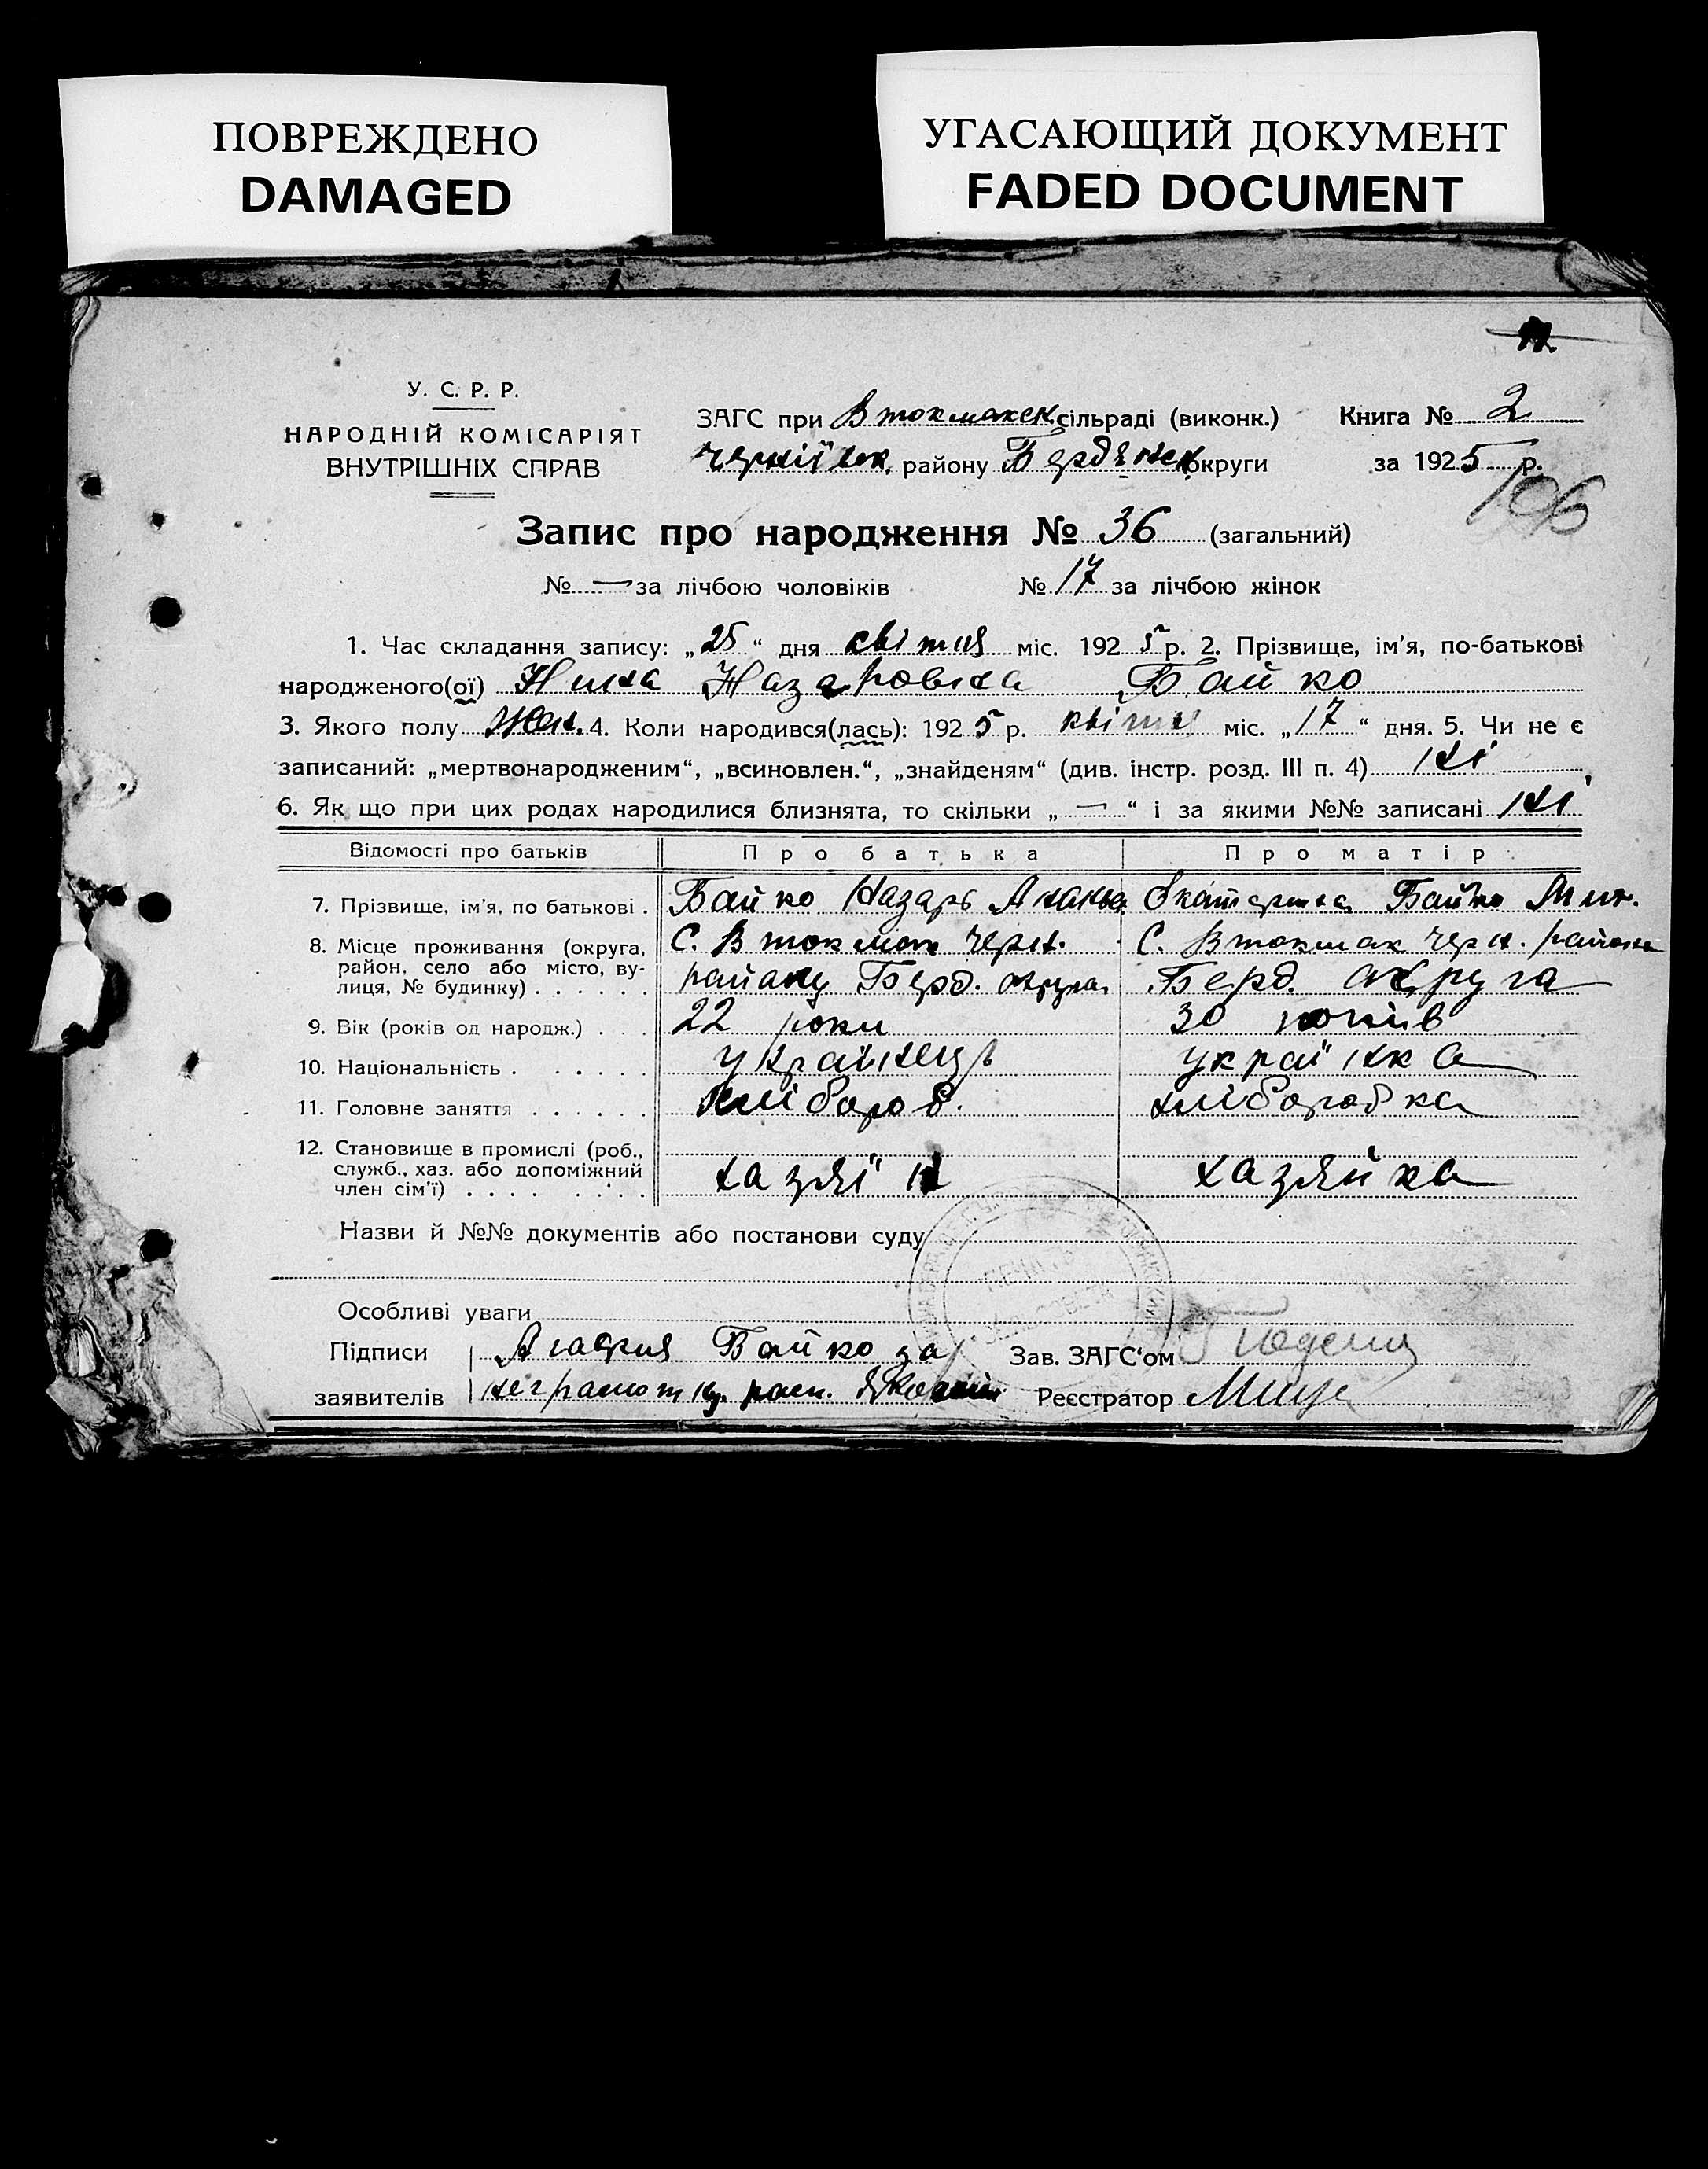 ПОВРЕЖДЕНО
DAMAGED
УГАСАЮЩИЙ ДОКУМЕНТ
FADED DOCUMENT
У. С. Р. Р.
НАРОДНІЙ КОМІСАРІЯТ
ВНУТРІШНІХ СПРАВ
ЗАГС при Втокмакск сільраді (виконк.) Книга № 2
Черніївск. району Бердянск округи за 1925 р.
106
Запис про народження № 36 (загальний)
№ — за лічбою чоловіків № 17 за лічбою жінок
1. Час складання запису: „25“ дня квітня міс. 1925 р. 2. Прізвище, ім’я, по-батькові
народженого(ої) Нина Назаровна Байко
3. Якого полу Жен. 4. Коли народився(лась): 1925 р. квітня міс. „17“ дня. 5. Чи не є
записаний: „мертвонародженим“, „всиновлен.“, „знайденям“ (див. інстр. розд. III п. 4) ні ,
6. Як що при цих родах народилися близнята, то скільки „—“ і за якими №№ записані ні
Відомості про батьків Про батька Про матір
7. Прізвище, ім’я, по батькові . Байко Назарь Ананьев. Екатерина Байко Мик.
8. Місце проживання (округа, С. Втокмак Черн. С. Втокмак Черн. района
район, село або місто, ву-
лиця, № будинку) . . . . . . району Берд. округа. Берд. округа
9. Вік (років од народж.) . . . 22 роки 30 років
10. Національність . . . . . . українець українка
11. Головне заняття . . . . . . хлібороб. хліборобка
12. Становище в промислі (роб.,
служб., хаз. або допоміжний
член сім’ї) . . . . . . . . хазяїн хазяйка
Назви й №№ документів або постанови суду
Особливі уваги
Підписи Агафия Байко за Зав. ЗАГС‘ом
заявителів неграмотну расп. Реєстратор